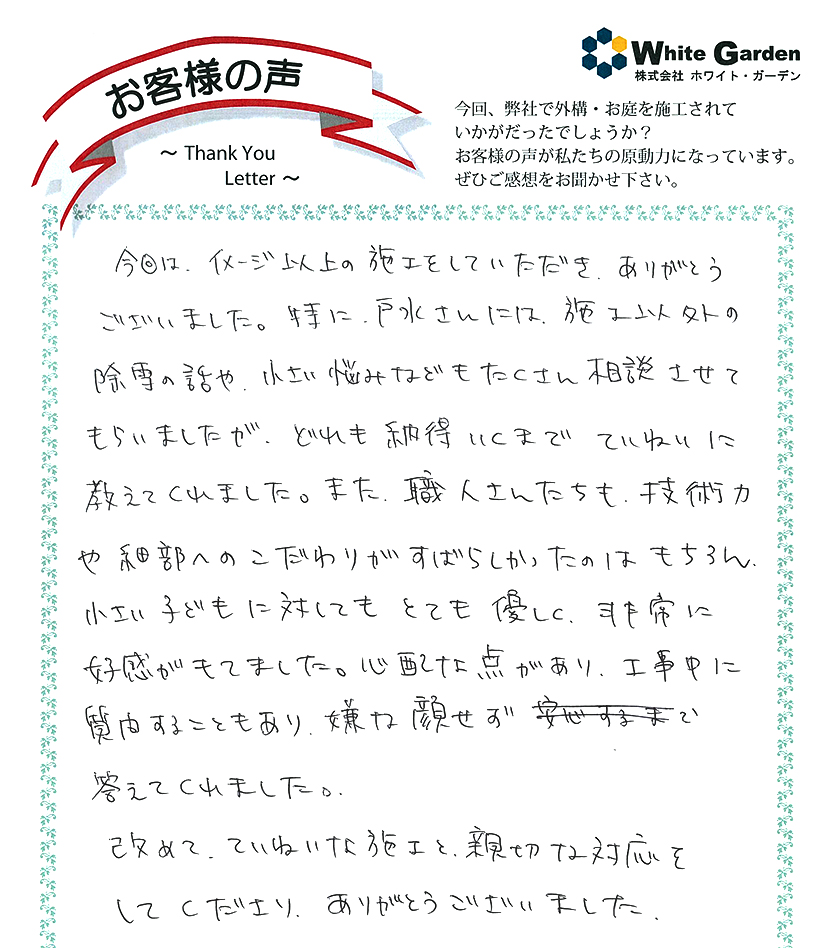 お客様の声
~ Thank You
Letter ~
White Garden
株式会社 ホワイト・ガーデン
今回、弊社で外構・お庭を施工されて
いかがだったでしょうか？
お客様の声が私たちの原動力になっています。
ぜひご感想をお聞かせ下さい。
今回は、イメージ以上の施工をしていただき、ありがとう
ございました。特に、戸水さんには、施工以外の
除雪の話や、小さい悩みなどもたくさん相談させて
もらいましたが、どれも納得いくまで ていねいに
教えてくれました。また、職人さんたちも、技術力
や細部へのこだわりがすばらしかったのはもちろん、
小さい子どもに対してもとても優しく、非常に
好感がもてました。心配な点があり、工事中に
質問することもあり、嫌な顔せず 安心するまで
答えてくれました。
改めて、ていねいな施工と、親切な対応を
してくださり、ありがとうございました。